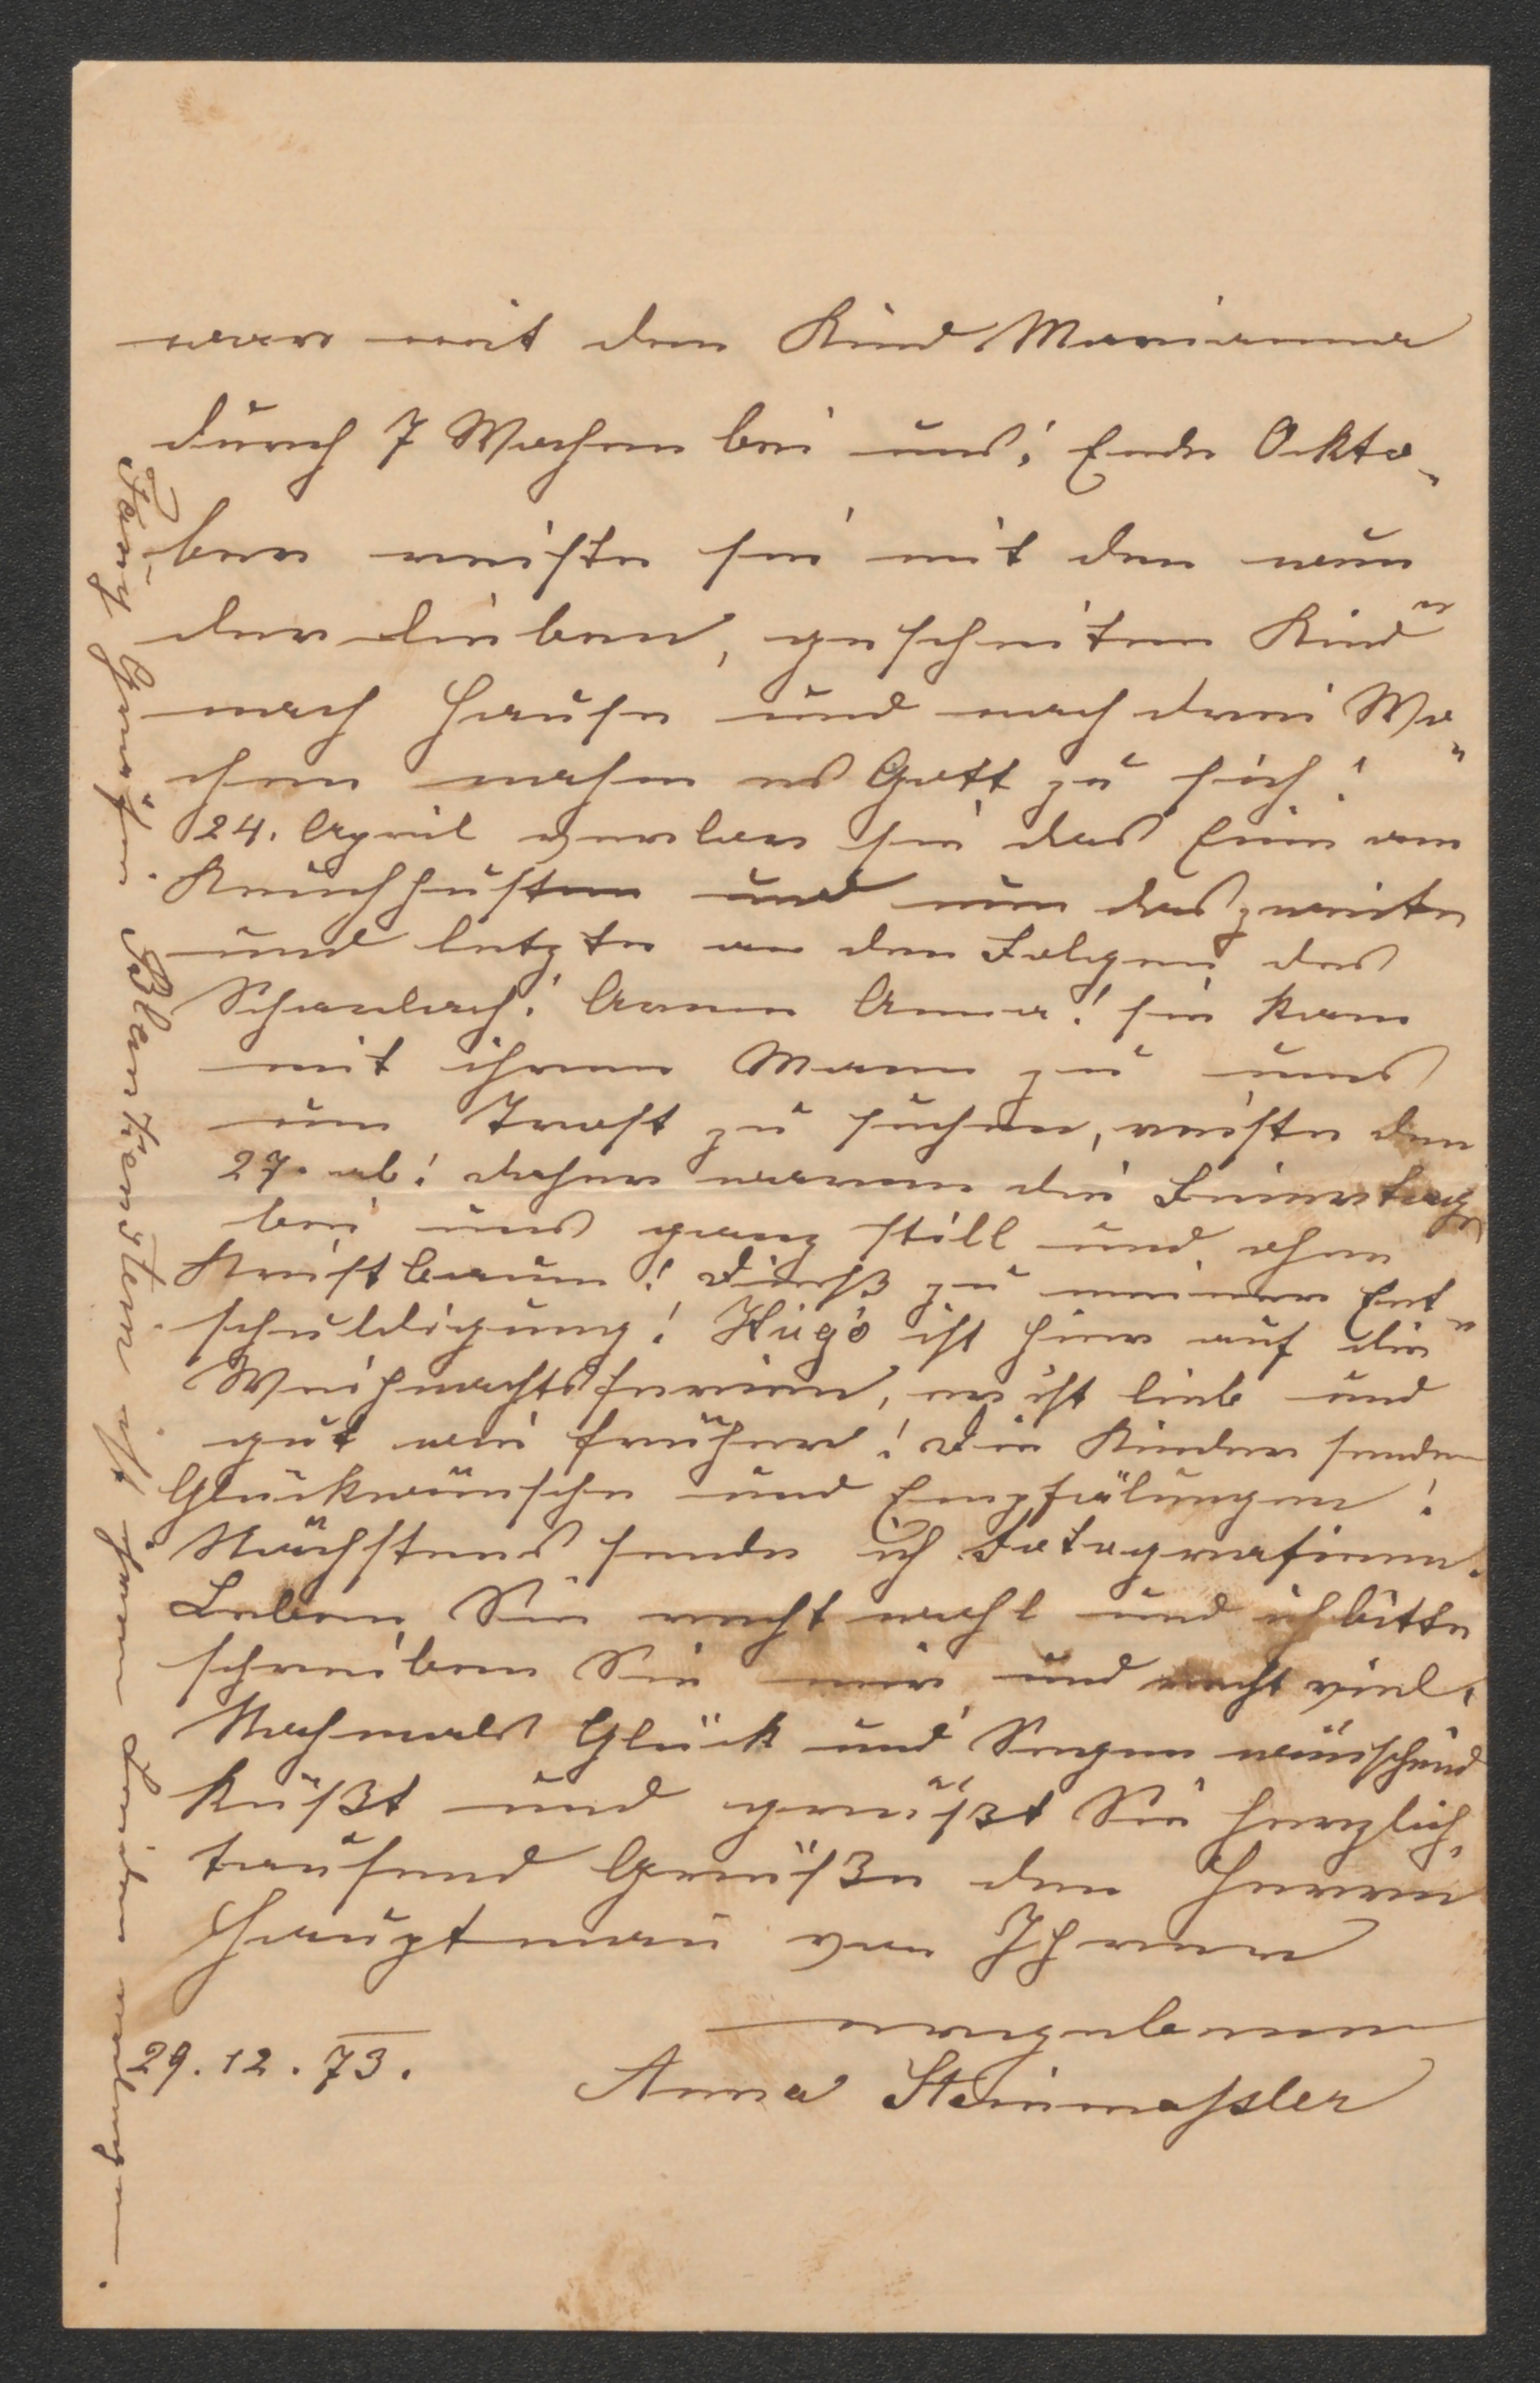 war mit dem Kind Marianna
durch 7 Wochen bei uns! Ende Okto-
ber reiste sie mit dem wun
derlieben, gescheiten Kind
nach Hause und nach drei Wo-
chen nahm es Gott zu sich!
24. April verlor sie das Eine am
Keuchhusten und nun das zweite
und letzte an den Folgen des
Scharlach! Arme Anna! sie kam
mit ihrem Mann zu uns
um Trost zu suchen, reiste den
27. ab! daher waren die Feiertage
bei uns ganz still und ohne
Kristbaum! Dieß zu meiner Ent-
schuldigung! Hugo ist hier auf die
Weihnachtsferien, er ist lieb und
gut wie früher! Die Kinder senden
Glückwünsche und Empfälungen!
Nächstens sende ich Fotografieen.
Leben Sie recht wohl und ich bitte
schreiben Sie mir und recht viel.
Nochmals Glück und Segen wünschend
küßt und grüßt Sie herzlich,
tausend Grüße dem Herrn
Hauptmann von Ihrer
ergebenen
29. 12. 73.
Anna Steinmassler
Fany Gräfin Blankenstein ist ihrem Leiden erlegen.